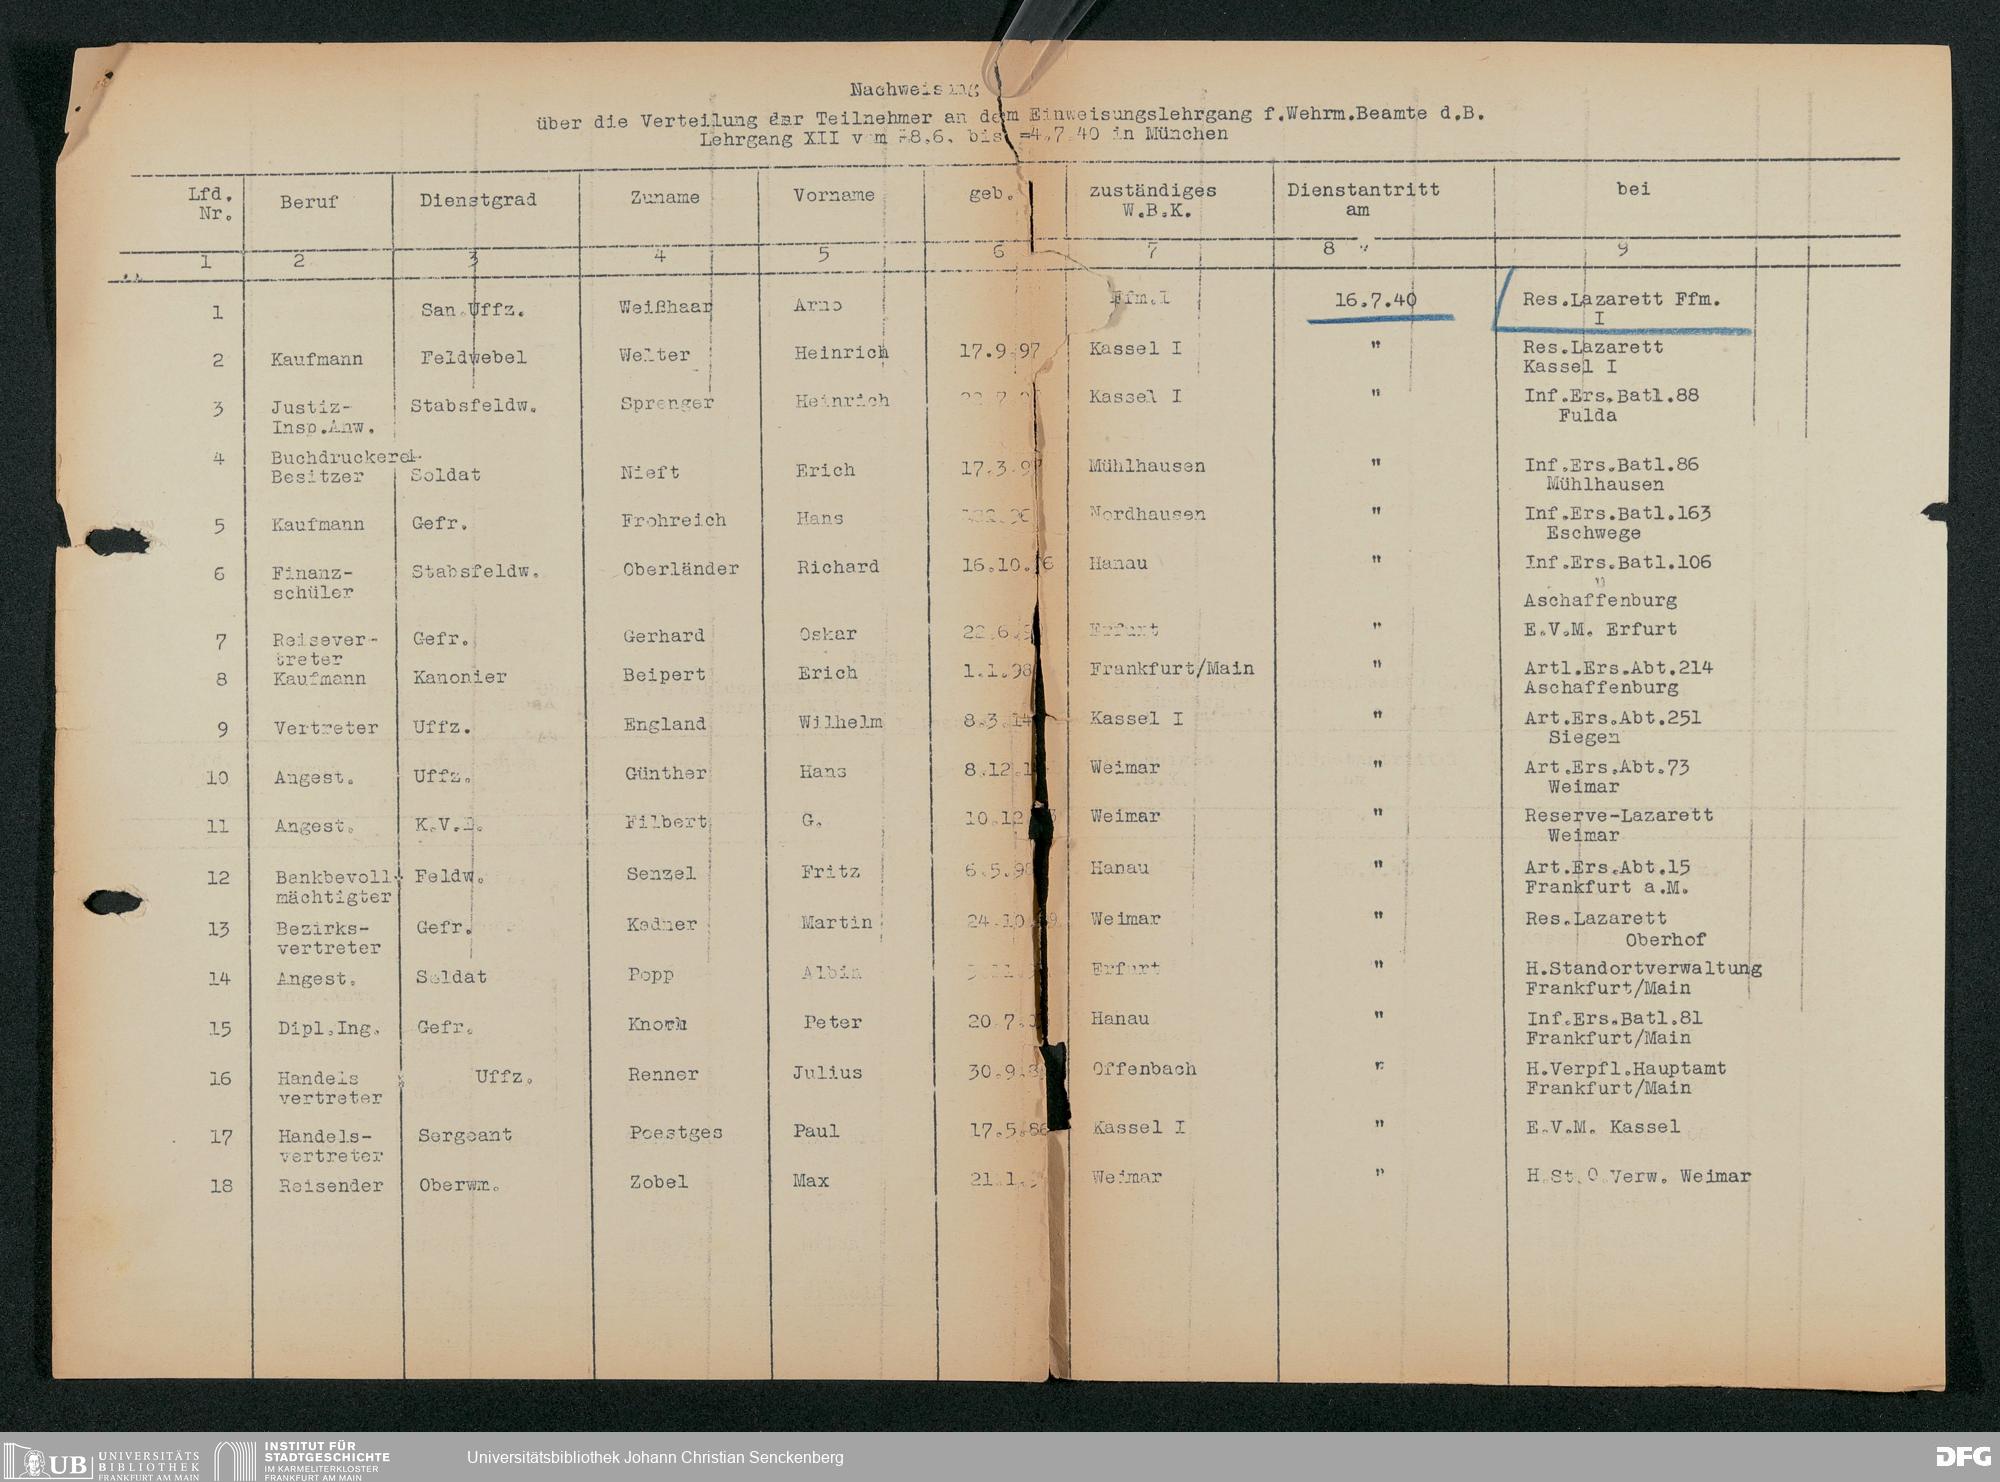 Nachweisung
über die Verteilung der Teilnehmer an dem Einweisungslehrgang f.Wehrm.Beamte d.B.
Lehrgang XII vom 8.6. bis =4.7.40 in München
Lfd. Nr. Beruf Dienstgrad Zuname Vorname geb. zuständiges W.B.K. Dienstantritt am bei
1 2 3 4 5 6 7 8 9
1 San.Uffz. Weißhaar Arno Ffm.I 16.7.40 Res.Lazarett Ffm.
I
2 Kaufmann Feldwebel Welter Heinrich 17.9.97 Kassel I " Res.Lazarett
Kassel I
3 Justiz- Stabsfeldw. Sprenger Heinrich Kassel I " Inf.Ers.Batl.88
Insp.Anw. Fulda
4 Buchdruckerei- Inf.Ers.Batl.86
Besitzer Soldat Nieft Erich 17.3.97 Mühlhausen " Mühlhausen
5 Kaufmann Gefr. Frohreich Hans Nordhausen " Inf.Ers.Batl.163
Eschwege
6 Finanz- Stabsfeldw. Oberländer Richard 16.10. Hanau " Inf.Ers.Batl.106
schüler "
Aschaffenburg
7 Reisever- Gefr. Gerhard Oskar 22.6. Erfurt " E.V.M. Erfurt
treter
8 Kaufmann Kanonier Beipert Erich 1.1.98 Frankfurt/Main " Artl.Ers.Abt.214
Aschaffenburg
9 Vertreter Uffz. England Wilhelm 8.3.14 Kassel I " Art.Ers.Abt.251
Siegen
10 Angest. Uffz. Günther Hans 8.12. Weimar " Art.Ers.Abt.73
Weimar
11 Angest. Filbert G. 10.12 Weimar " Reserve-Lazarett
Weimar
12 Bankbevoll- Feldw. Senzel Fritz 6.5. Hanau " Art.Ers.Abt.15
mächtigter Frankfurt a.M.
13 Bezirks- Gefr. Kadner Martin 24.10. Weimar " Res.Lazarett
vertreter Oberhof
14 Angest. Soldat Popp Albin Erfurt " H.Standortverwaltung
Frankfurt/Main
15 Dipl.Ing. Gefr. Knoch Peter 20.7. Hanau " Inf.Ers.Batl.81
Frankfurt/Main
16 Handels Uffz. Renner Julius 30.9. Offenbach " H.Verpfl.Hauptamt
vertreter Frankfurt/Main
17 Handels- Sergeant Poestges Paul 17.5.86 Kassel I " E.V.M. Kassel
vertreter
18 Reisender Oberwm. Zobel Max 21.1. Weimar " H.St.O.Verw. Weimar
UB UNIVERSITÄTS
BIBLIOTHEK
FRANKFURT AM MAIN
INSTITUT FÜR
STADTGESCHICHTE
IM KARMELITERKLOSTER
FRANKFURT AM MAIN
Universitätsbibliothek Johann Christian Senckenberg
DFG